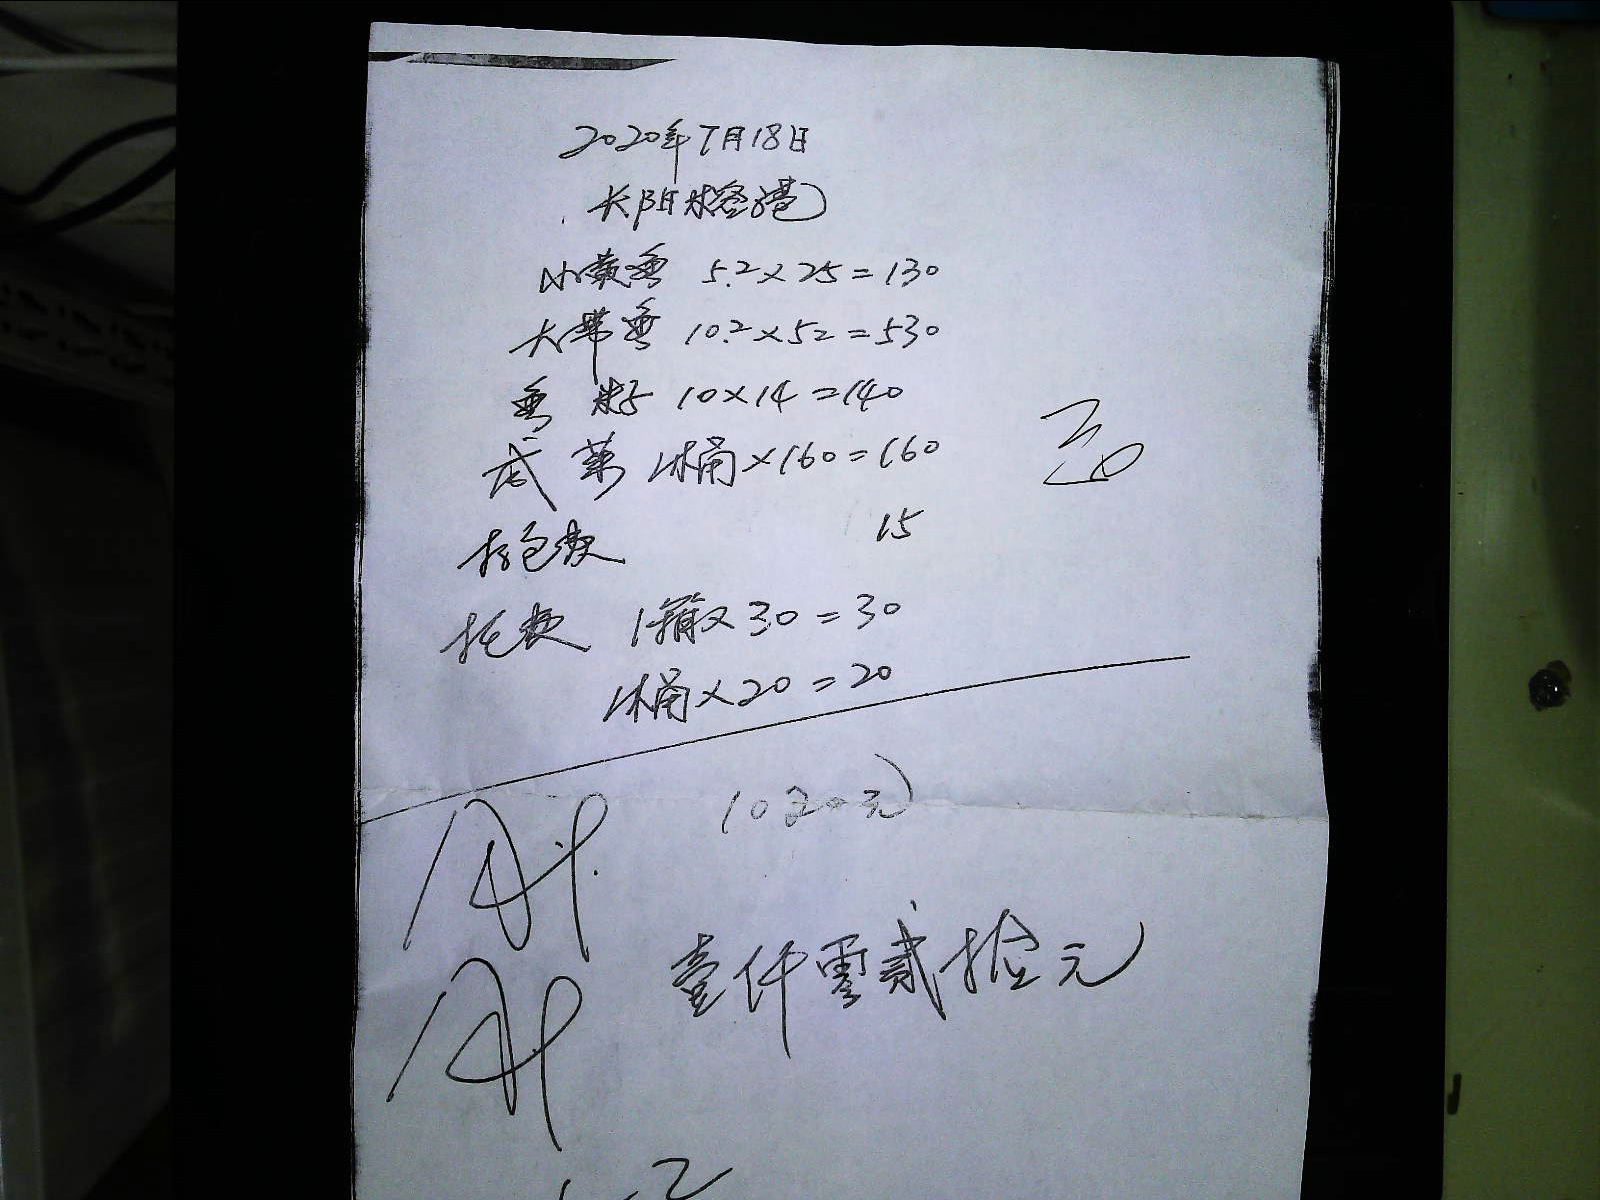 2020年7月18日
长阳榕港
小黄鱼 5.2×25=130
大带鱼 10.2×52=530
鱼籽 10×14=140
咸菜 1桶×160=160
打包费 15
托费 1箱×30=30
1桶×20=20
1020元
壹仟零贰拾元